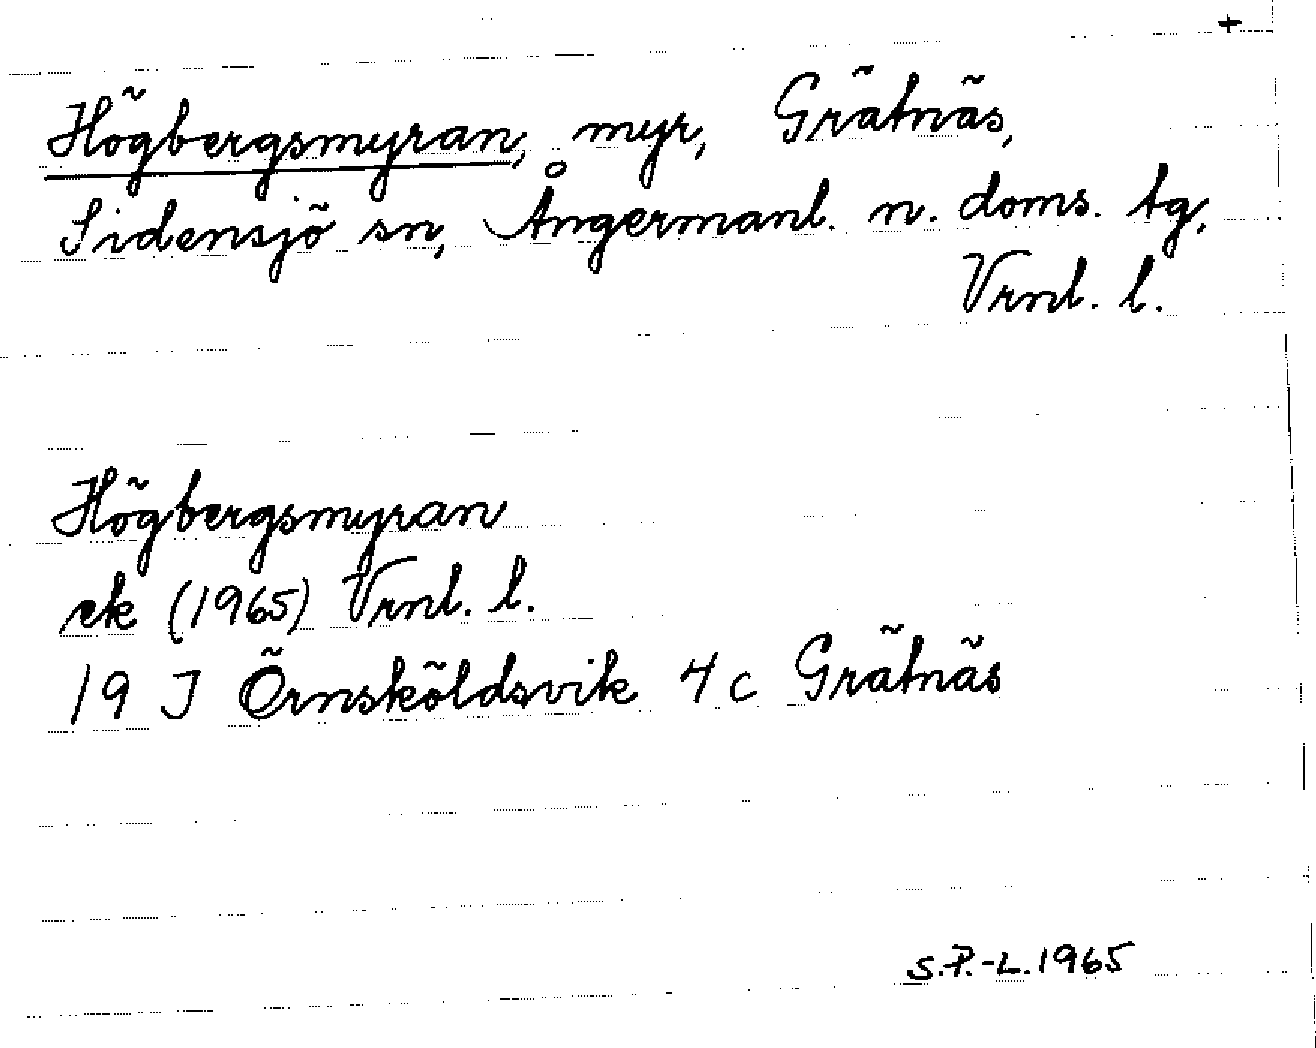 +
Högbergsmyran, myr, Grätnäs,
Sidensjö sn, Ångermanl. n. doms. tg,
Vrnl. l.
Högbergsmyran
ek (1965) Vrnl. l.
19 J Örnsköldsvik 4 c Grätnäs
S.P.-L. 1965